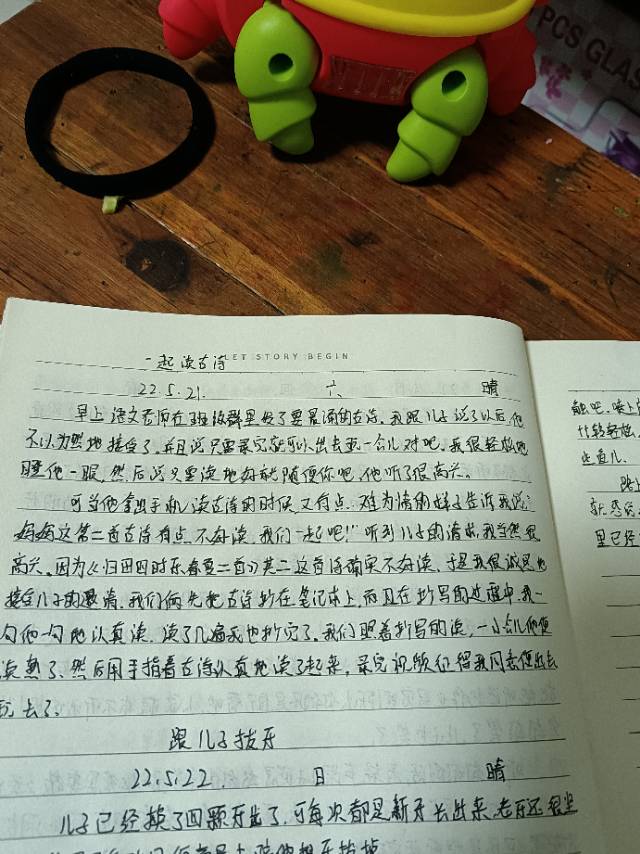 PCS GLAS
LET STORY BEGIN
一起读古诗
22.5.21. 六 晴
早上语文老师在班级群里发了要晨诵的古诗。我跟儿子说了以后,他
不以为然地接受了,并且说只要录完就可以出去玩一会儿对吧。我很轻松地
瞪他一眼,然后说只要读地好就随便你吧,他听了很高兴。
可当他拿出手机读古诗的时候又有点难为情的样子告诉我说:
妈妈这第二首古诗有点不好读,我们一起吧!”听到儿子的请求,我当然很
高兴。因为《归田四时乐春夏二首》其二这首诗确实不好读,于是我很诚恳地
接受儿子的邀请,我们俩先把古诗抄在笔记本上,而且在抄写的过程中,我一
句他一句地认真读,读了几遍我也抄完了。我们照着抄写的读,一会儿他便
读熟了,然后用手指着古诗认真地读了起来,录完视频征得我同意便出去
玩去了。
跟儿子拔牙
22.5.22. 日 晴
儿子已经换了四颗牙齿了,可每次都是新牙长出来,老牙还很坐
能吧,晚上
什转轻松
路上
里已经